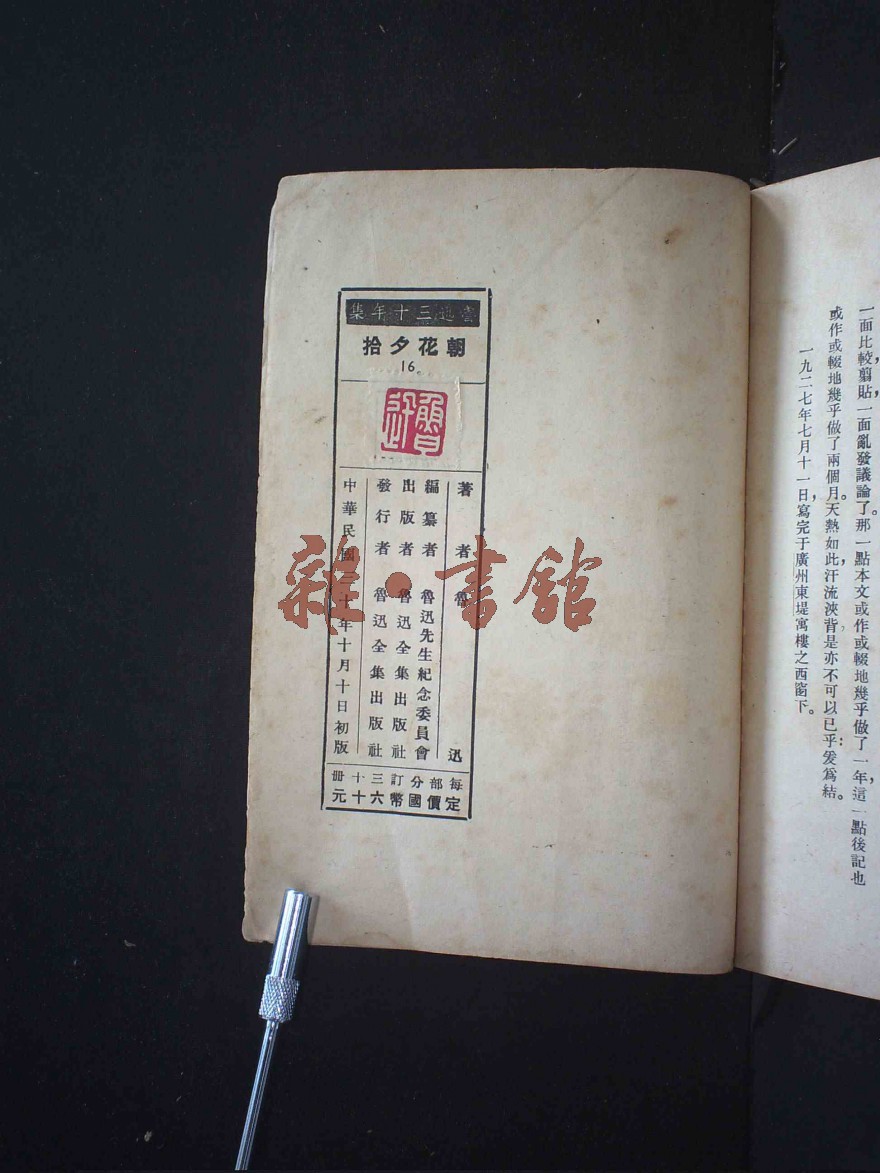 一面比較翦貼,一面亂發議論了。那一點本文或作或輟地幾乎做了一年,這一點後記也
或作或輟地幾乎做了兩個月。天熱如此,汗流浹背是亦不可以已乎:爰爲結。
一九二七年七月十一日,寫完于廣州東堤寓樓之西窗下。
魯迅三十年集
朝花夕拾
16
魯迅
著者魯迅
編纂者 魯迅先生紀念委員會
出版者 魯迅全集出版社
發行者 魯迅全集出版社
中華民國三十年十月十日初版
每部分訂三十冊
定價國幣六十元
雜·書館